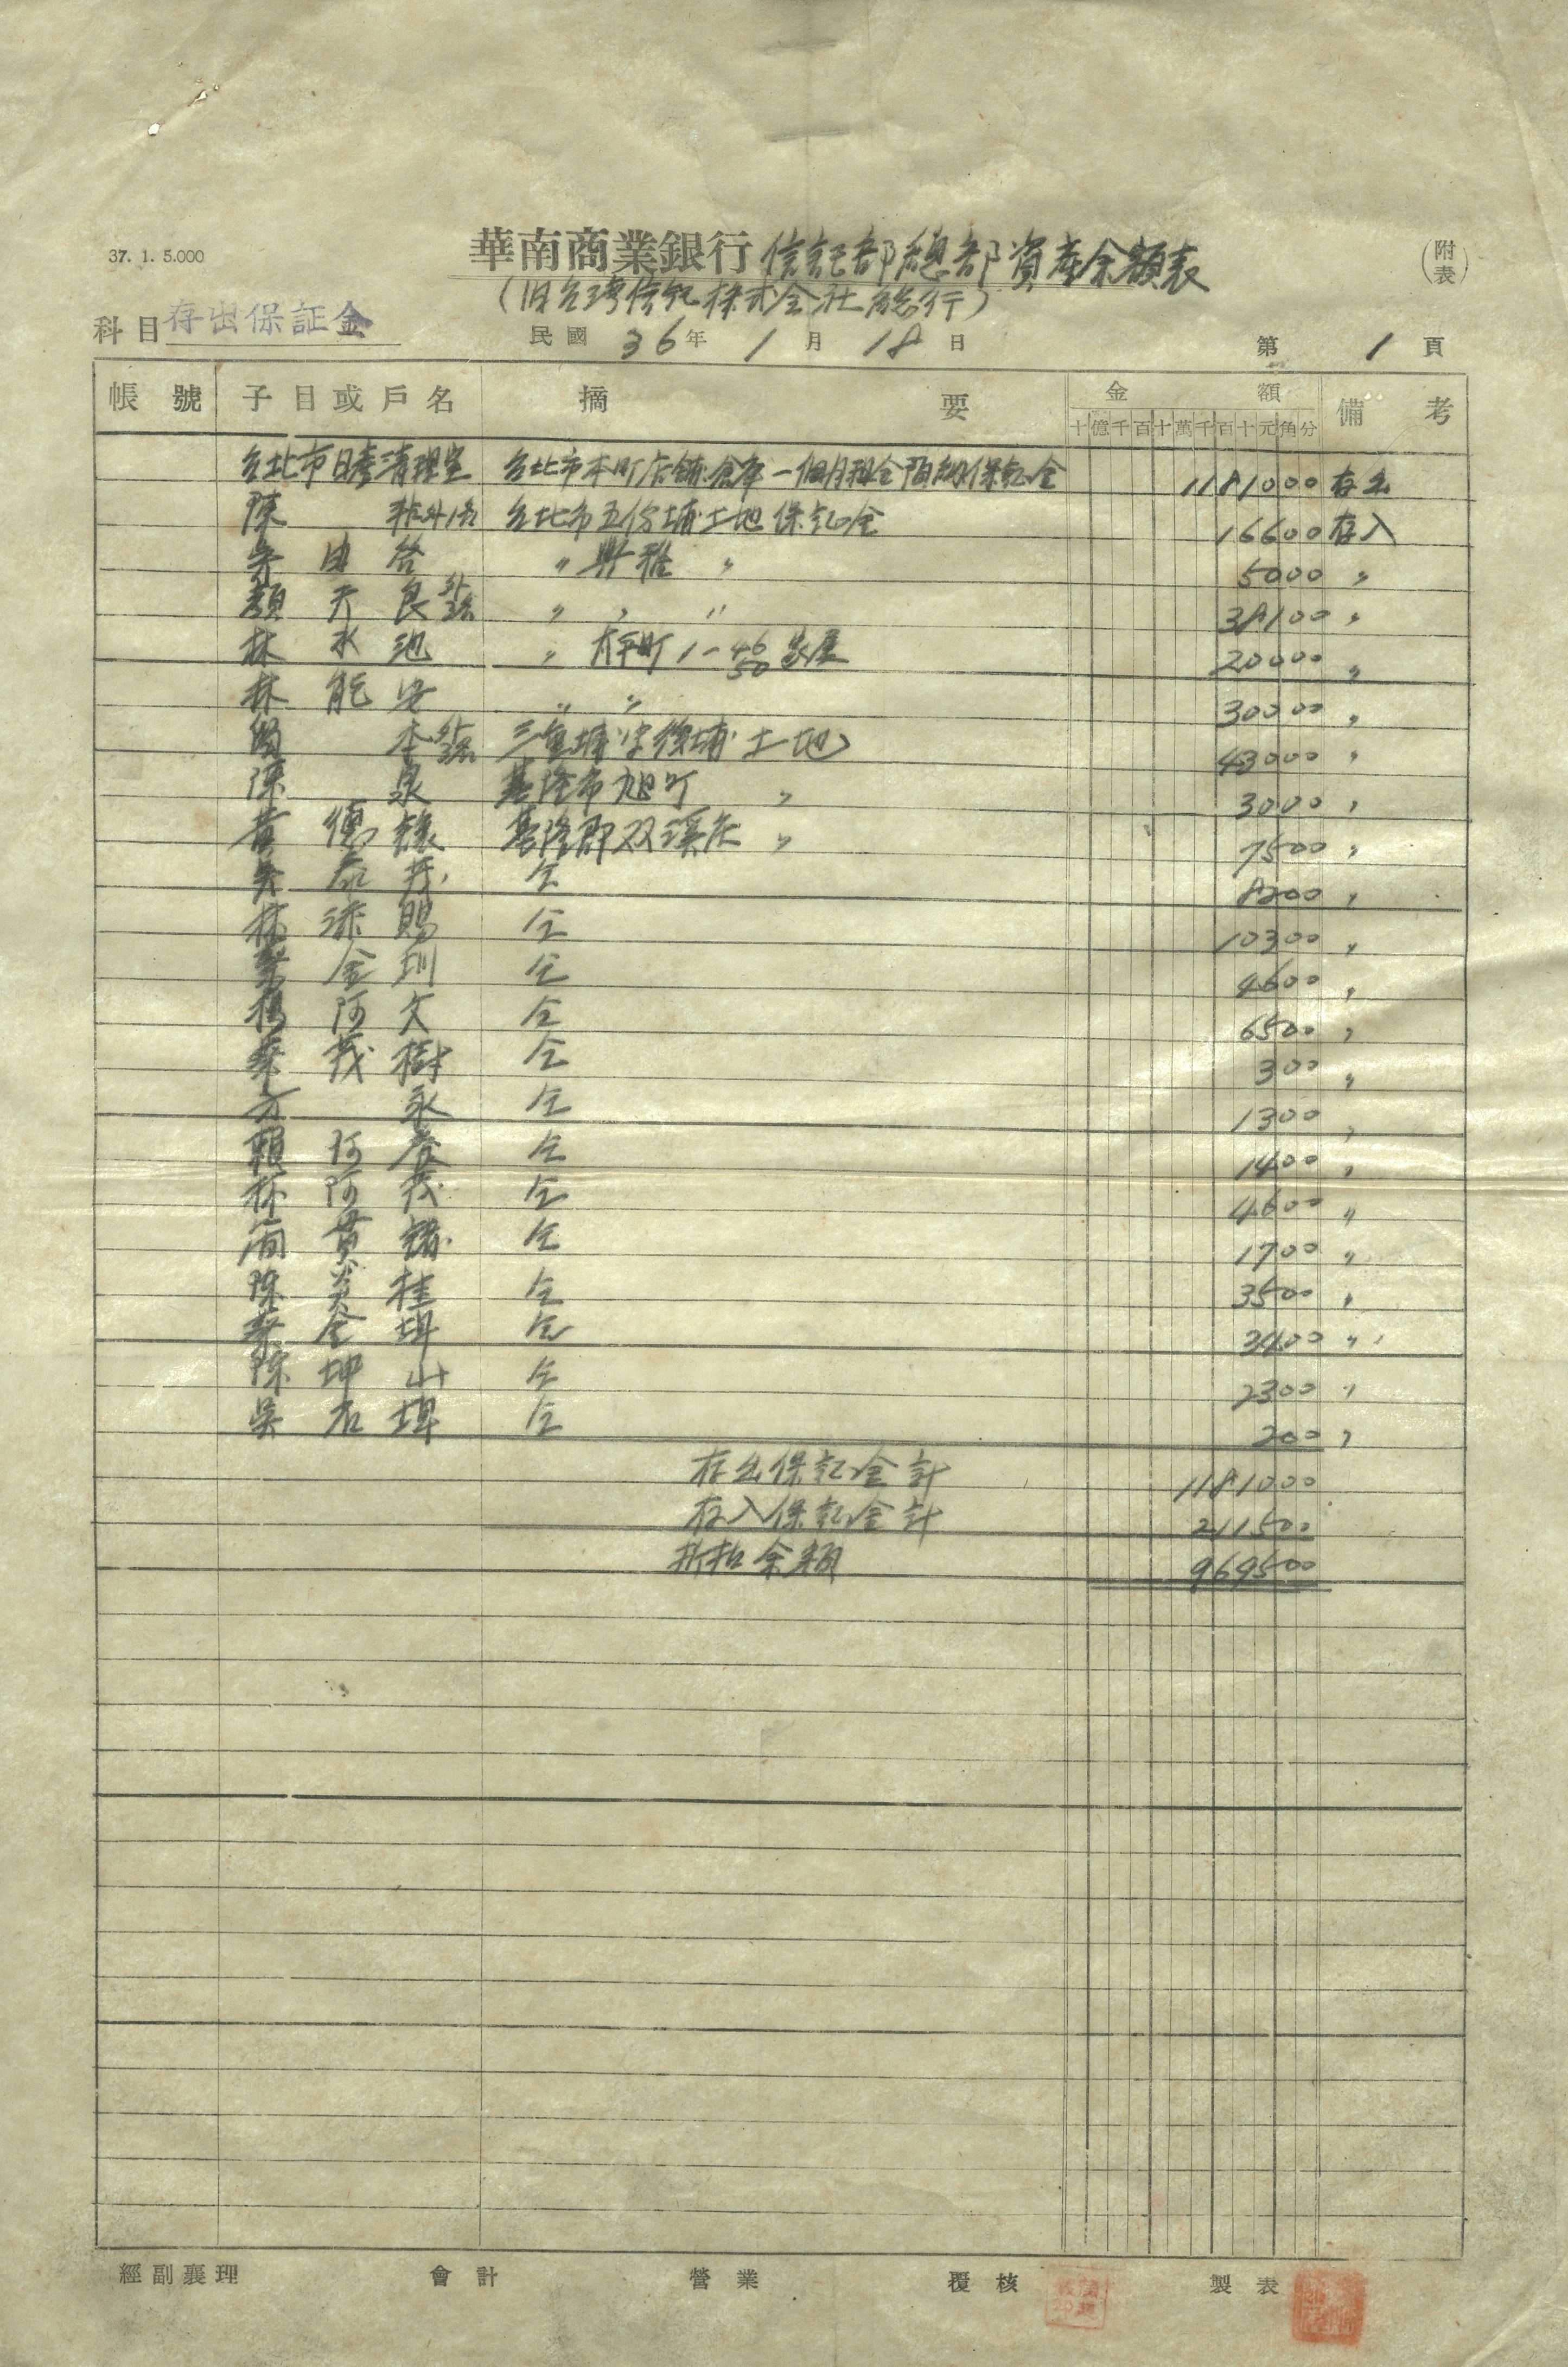 37. 1. 5.000
華南商業銀行信託部總部資產余額表
(附表)
(旧台灣信託株式会社總行)
科目 存出保証金
民國 36年 1月 18日
第 1 頁
帳號 子目或戶名 摘要 金額 備考
十億千百十萬千百十元角分
台北市日產清理室 台北市本町店舖倉庫一個月租金預納保証金 1181000 存出
陳 台北市五份埔土地保証金 16600 存入
" " 5000 "
顏天良外 " " " 38100 "
林水池 " 1-46 50 家屋 20000 "
林能安 " " 30000 "
本外 三重埔字後埔土地 43000 "
陳泉 基隆市旭町 " 3000 "
黃德 基隆郡双溪庄 " 7500 "
吳泰茂 仝 8200 "
林添賜 仝 10300 "
金圳 仝 4600 "
楊阿文 仝 6500 "
蔡茂樹 仝 300 "
方永 仝 1300 "
賴阿 仝 1400 "
林阿茂 仝 4600 "
簡貫 仝 1700 "
陳炎桂 仝 3500 "
蔡金埤 仝 3400 "
陳坤山 仝 2300 "
吳石埤 仝 200 "
存出保証金計 1181000
存入保証金計 211500
折扣余額 969500
經副襄理 會計 營業 覆核 製表